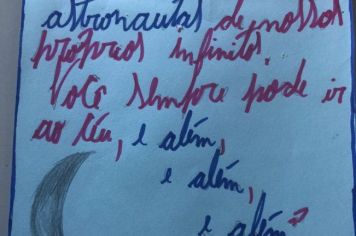 astronautas de nossos
próprios infinitos.
Você sempre pode ir
ao céu, e além,
e além,
e além"